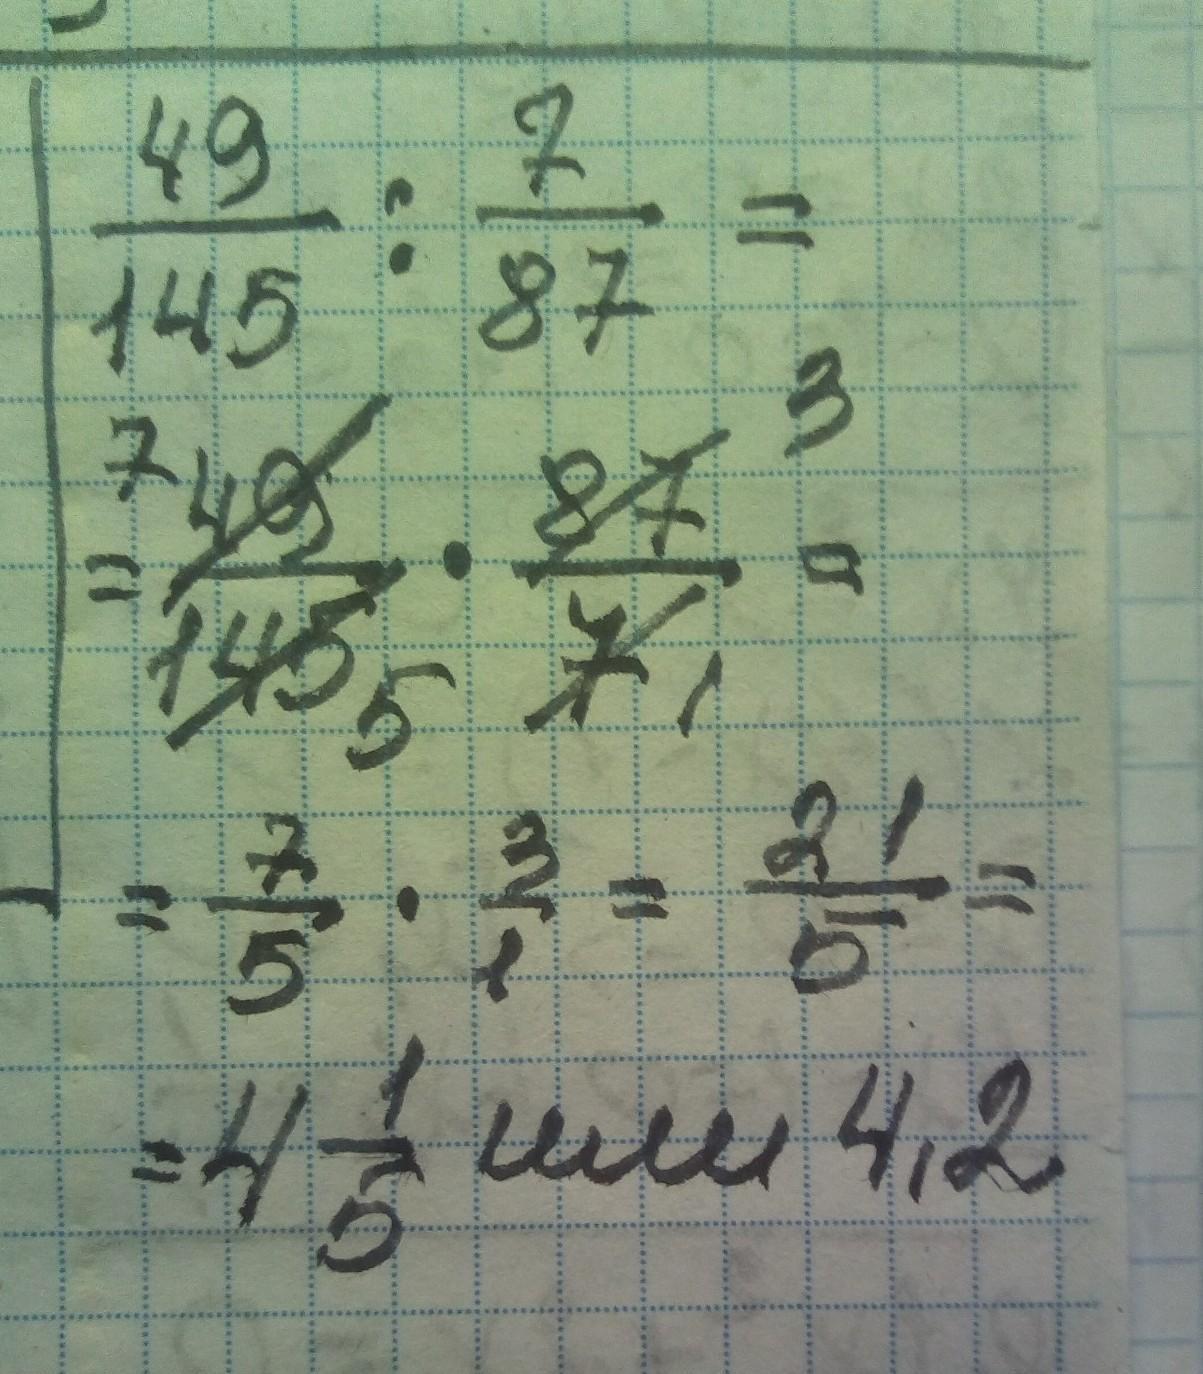 49/145 : 7/87 =
= 7 49/145 5 · 87/7 3 1 =
= 7/5 · 3/1 = 21/5 =
= 4 1/5 или 4,2